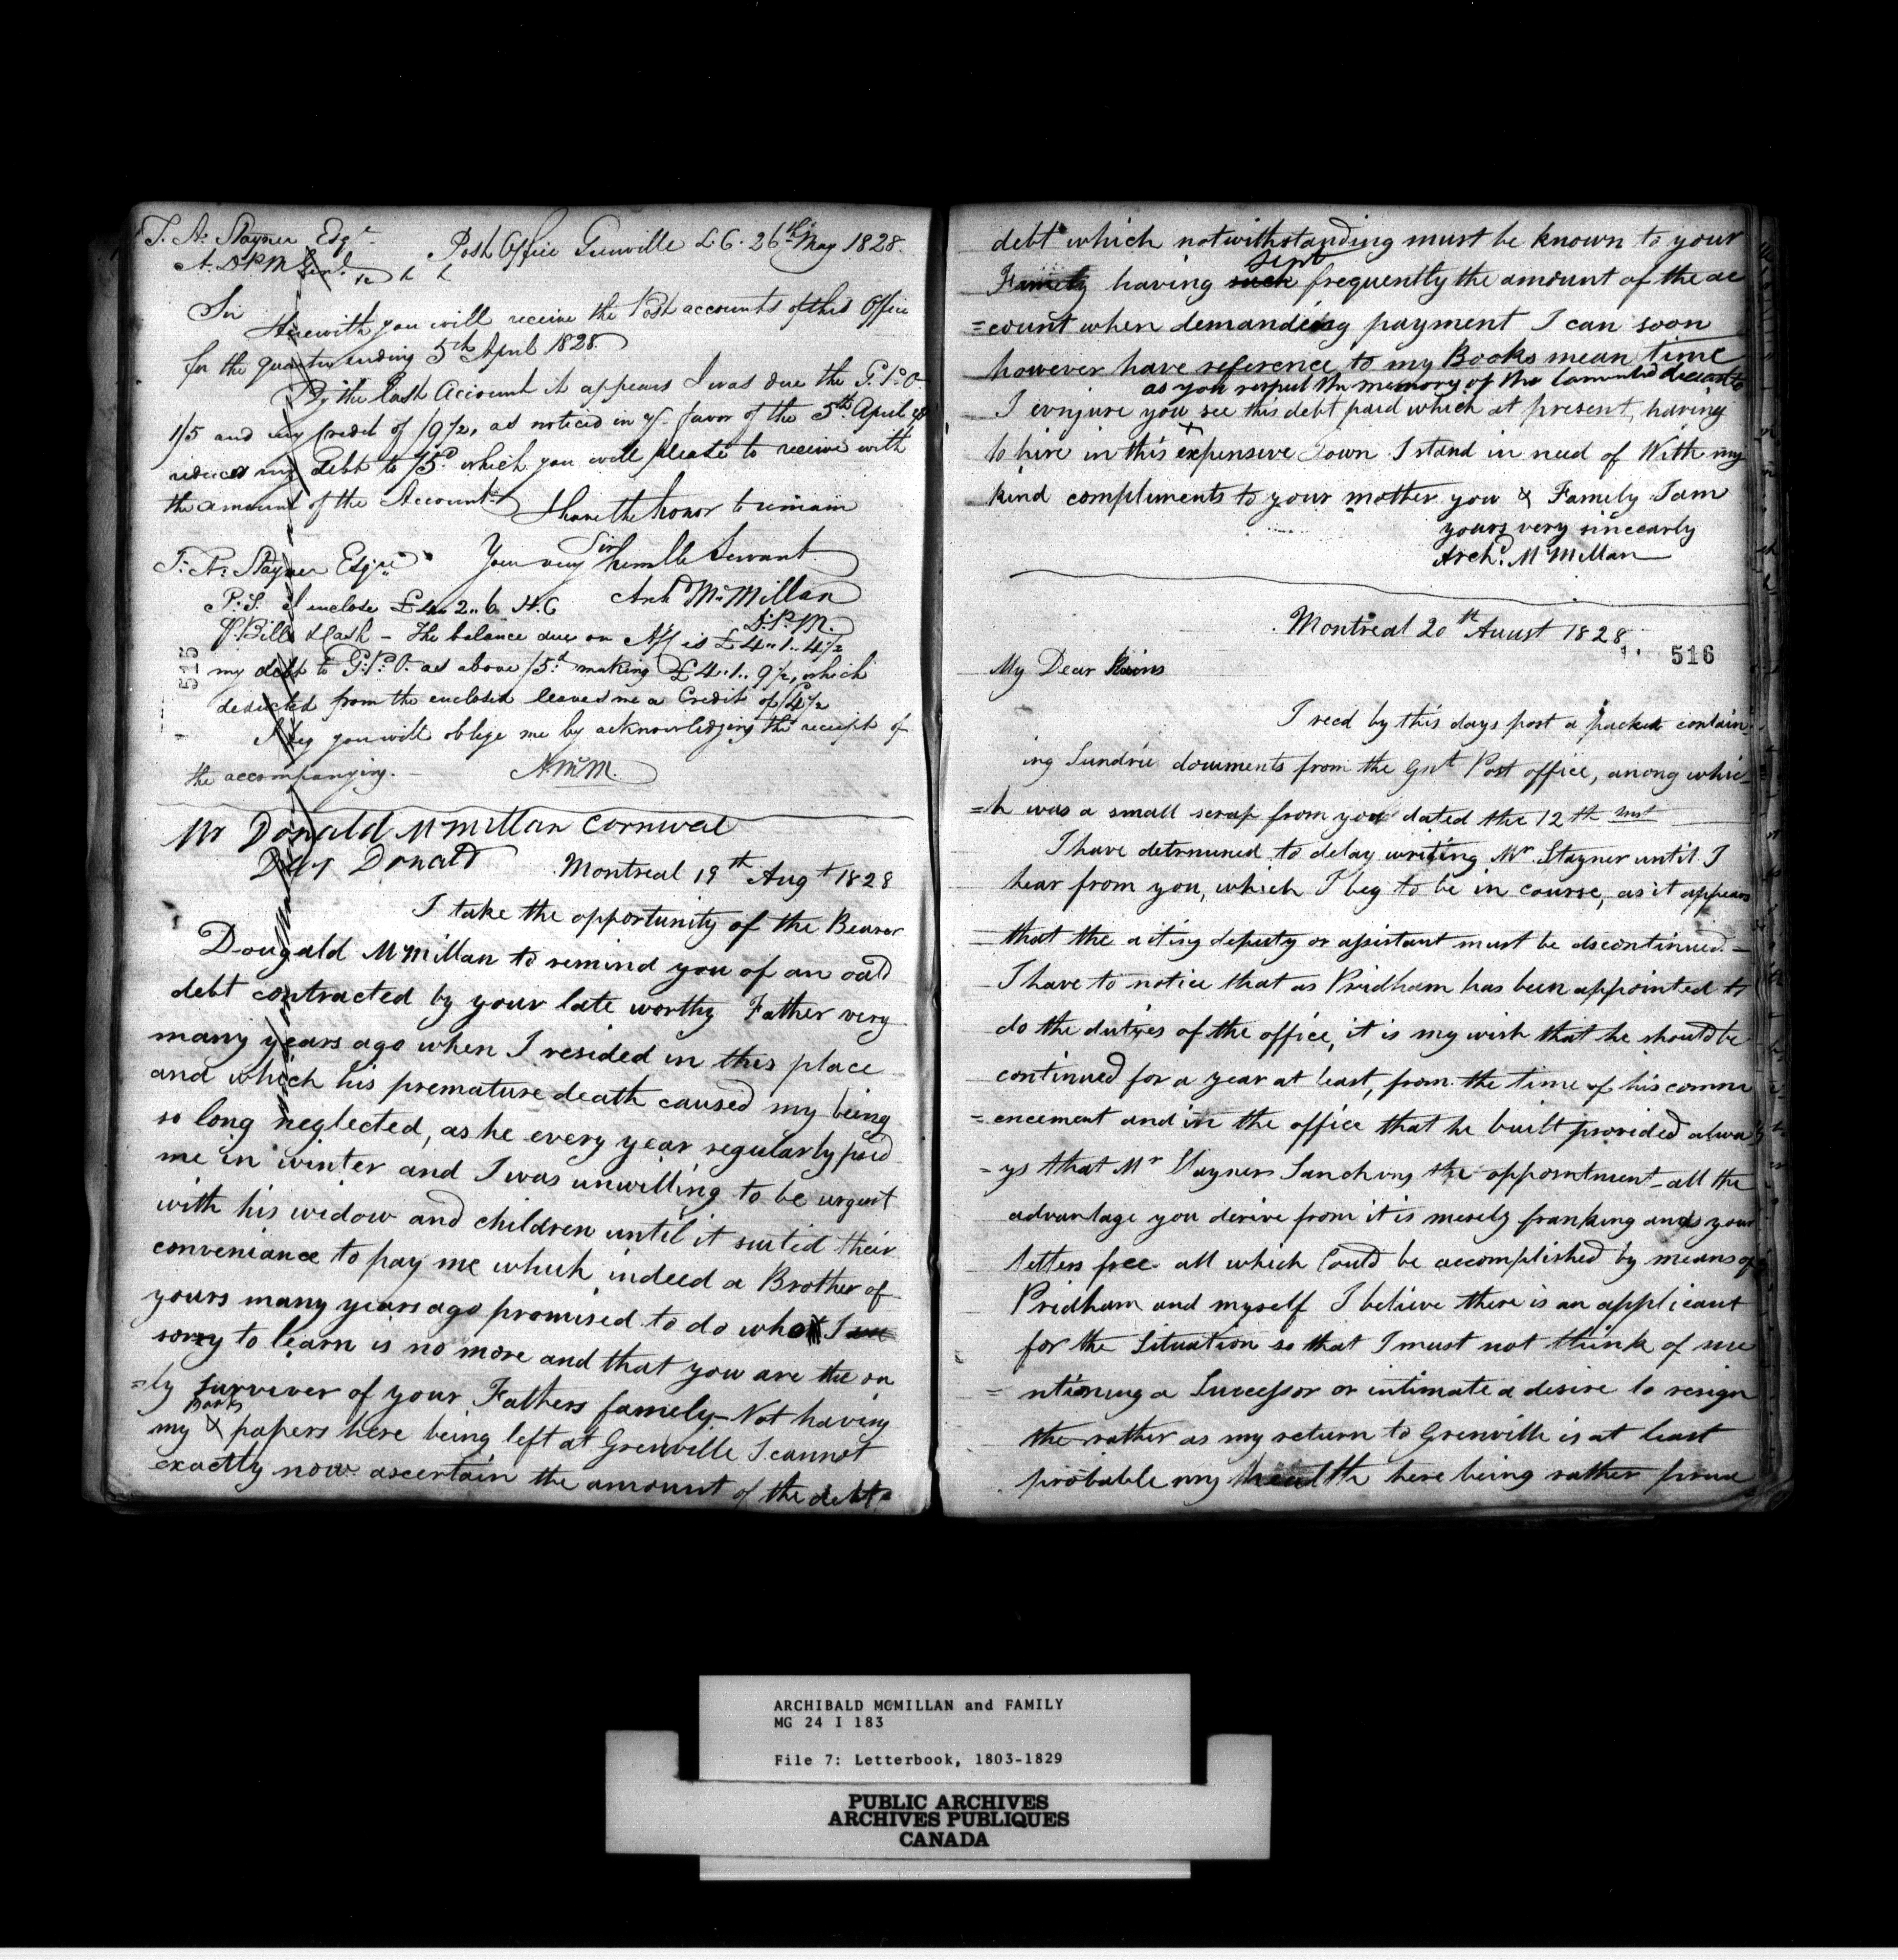 T. A. Stayner Esqr.
Post Office Grenville L.C. 26th May 1828.
A. D P M Genl.
Sir
Herewith you will receive the Post accounts of this Office
for the quarter ending 5th April 1828.
By the last Account it appears I was due the G. P. O.
1/5 and my Credit of /9½, as noticed in yr. favor of the 5th April
reduces my debt to /5d. which you will please to receive with
the amount of the Account.
I have the honor to remain
Sir
Your very humble Servant
T. A. Stayner Esqre.
Archd McMillan
D.P.M.
P.S. I enclose £4..2..6 H.C
P. Bills & Cash – The balance due on A/C is £4..1..4½
my debt to G.P.O. as above /5d. making £4..1..9½, which
deducted from the enclosed leaves me a Credit of
I beg you will oblige me by acknowledging the receipt of
the accompanying. –
A. McM.
515
Mr Donald McMillan Cornwal
Dear Donald
Montreal 19th Augt 1828
I take the opportunity of the Bearer
Dougald McMillan to remind you of an oald
debt contracted by your late worthy Father very
many years ago when I resided in this place
and which his premature death caused my being
so long neglected, as he every year regularly paid
me in winter and I was unwilling to be urgent
with his widow and children until it suited their
conveniance to pay me which indeed a Brother of
yours many years ago promised to do who I
sorry to learn is no more and that you are the on
=ly surviver of your Fathers famely – Not having
Books
my & papers here being left at Grenville I cannot
exactly now ascertain the amount of the debt
debt which notwithstanding must be known to your
sent
Famely having such frequently the amount of the ac
=count when demandeing payment I can soon
however have reference to my Books mean time
as you respect the memory of the lamented deceased
I conjure you see this debt paid which at present, having
to hire in this expensive Town I stand in need of With my
kind compliments to your mother you & Famely I am
yours very sincearly
Archd. McMillan
Montreal 20th Auust 1828
516
My Dear
I recd by this days post a packet contain
ing Sundrie documents from the Gnl Post office, anong whic
=h was a small scrap from you dated the 12th inst
I have determined to delay writing Mr. Stayner until I
hear from you, which I beg to be in course, as it appears
that the acting deputy or assistant must be discontinued. –
I have to notice that as Pridham has been appointed to
do the duties of the office, it is my wish that he should be
continued for a year at least, from the time of his comm
=encement and in the office that he built provided alwa
=ys that Mr Stayner Sanchons the appointment – all the
advantage you derive from it is merely franking and your
letters free all which Could be accomplished by means of
Pridham and myself I believe there is an applicant
for the Situation so that I must not think of me
=ntioning a Successor or intimate a desire to resign
the rather as my return to Grenville is at least
probable my health here being rather
ARCHIBALD MCMILLAN and FAMILY
MG 24 I 183
File 7: Letterbook, 1803-1829
PUBLIC ARCHIVES
ARCHIVES PUBLIQUES
CANADA